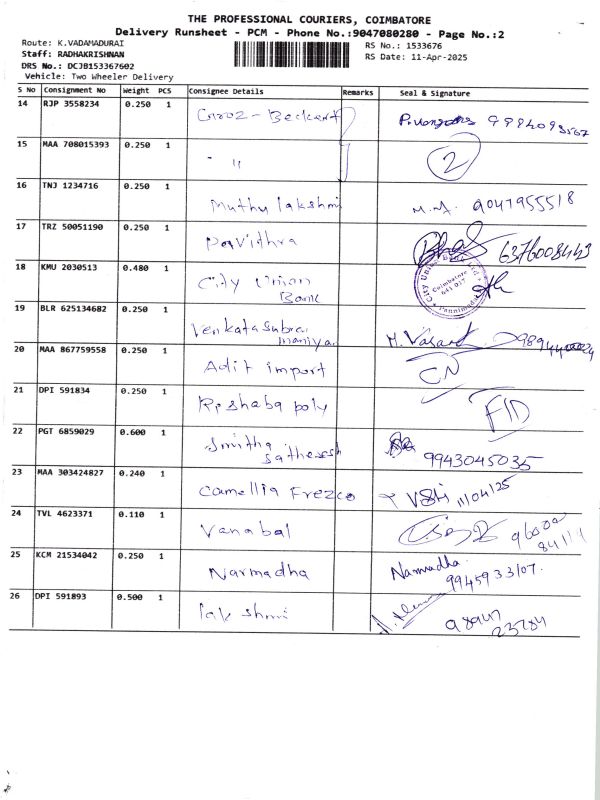 THE PROFESSIONAL COURIERS, COIMBATORE
Delivery Runsheet - PCM - Phone No.:9047080280 - Page No.:2
Route: K.VADAMADURAI
Staff: RADHAKRISHNAN
DRS No.: DCJB153367602
Vehicle: Two Wheeler Delivery
RS No.: 1533676
RS Date: 11-Apr-2025
S No Consignment No Weight PCS Consignee Details Remarks Seal & Signature
14 RJP 3558234 0.250 1
15 MAA 708015393 0.250 1 " 11 2
16 TNJ 1234716 0.250 1 Muthu lakshmi M.M. 9047955518
17 TRZ 50051190 0.250 1 Pavidhra 6376008443
18 KMU 2030513 0.480 1 City Union
Bank
Coimbatore
19 BLR 625134682 0.250 1 Venkata Subra
maniya
20 MAA 867759558 0.250 1 Adit import CN
21 DPI 591834 0.250 1 Rishaba poly FID
22 PGT 6859029 0.600 1 Smitha
satheesh 9943045035
23 MAA 303424827 0.240 1 Camellia Frezco 11/04/125
24 TVL 4623371 0.110 1 Vanabal
25 KCM 21534042 0.250 1 Narmadha Narmadha
9945933107.
26 DPI 591893 0.500 1 lakshmi 98947
23784